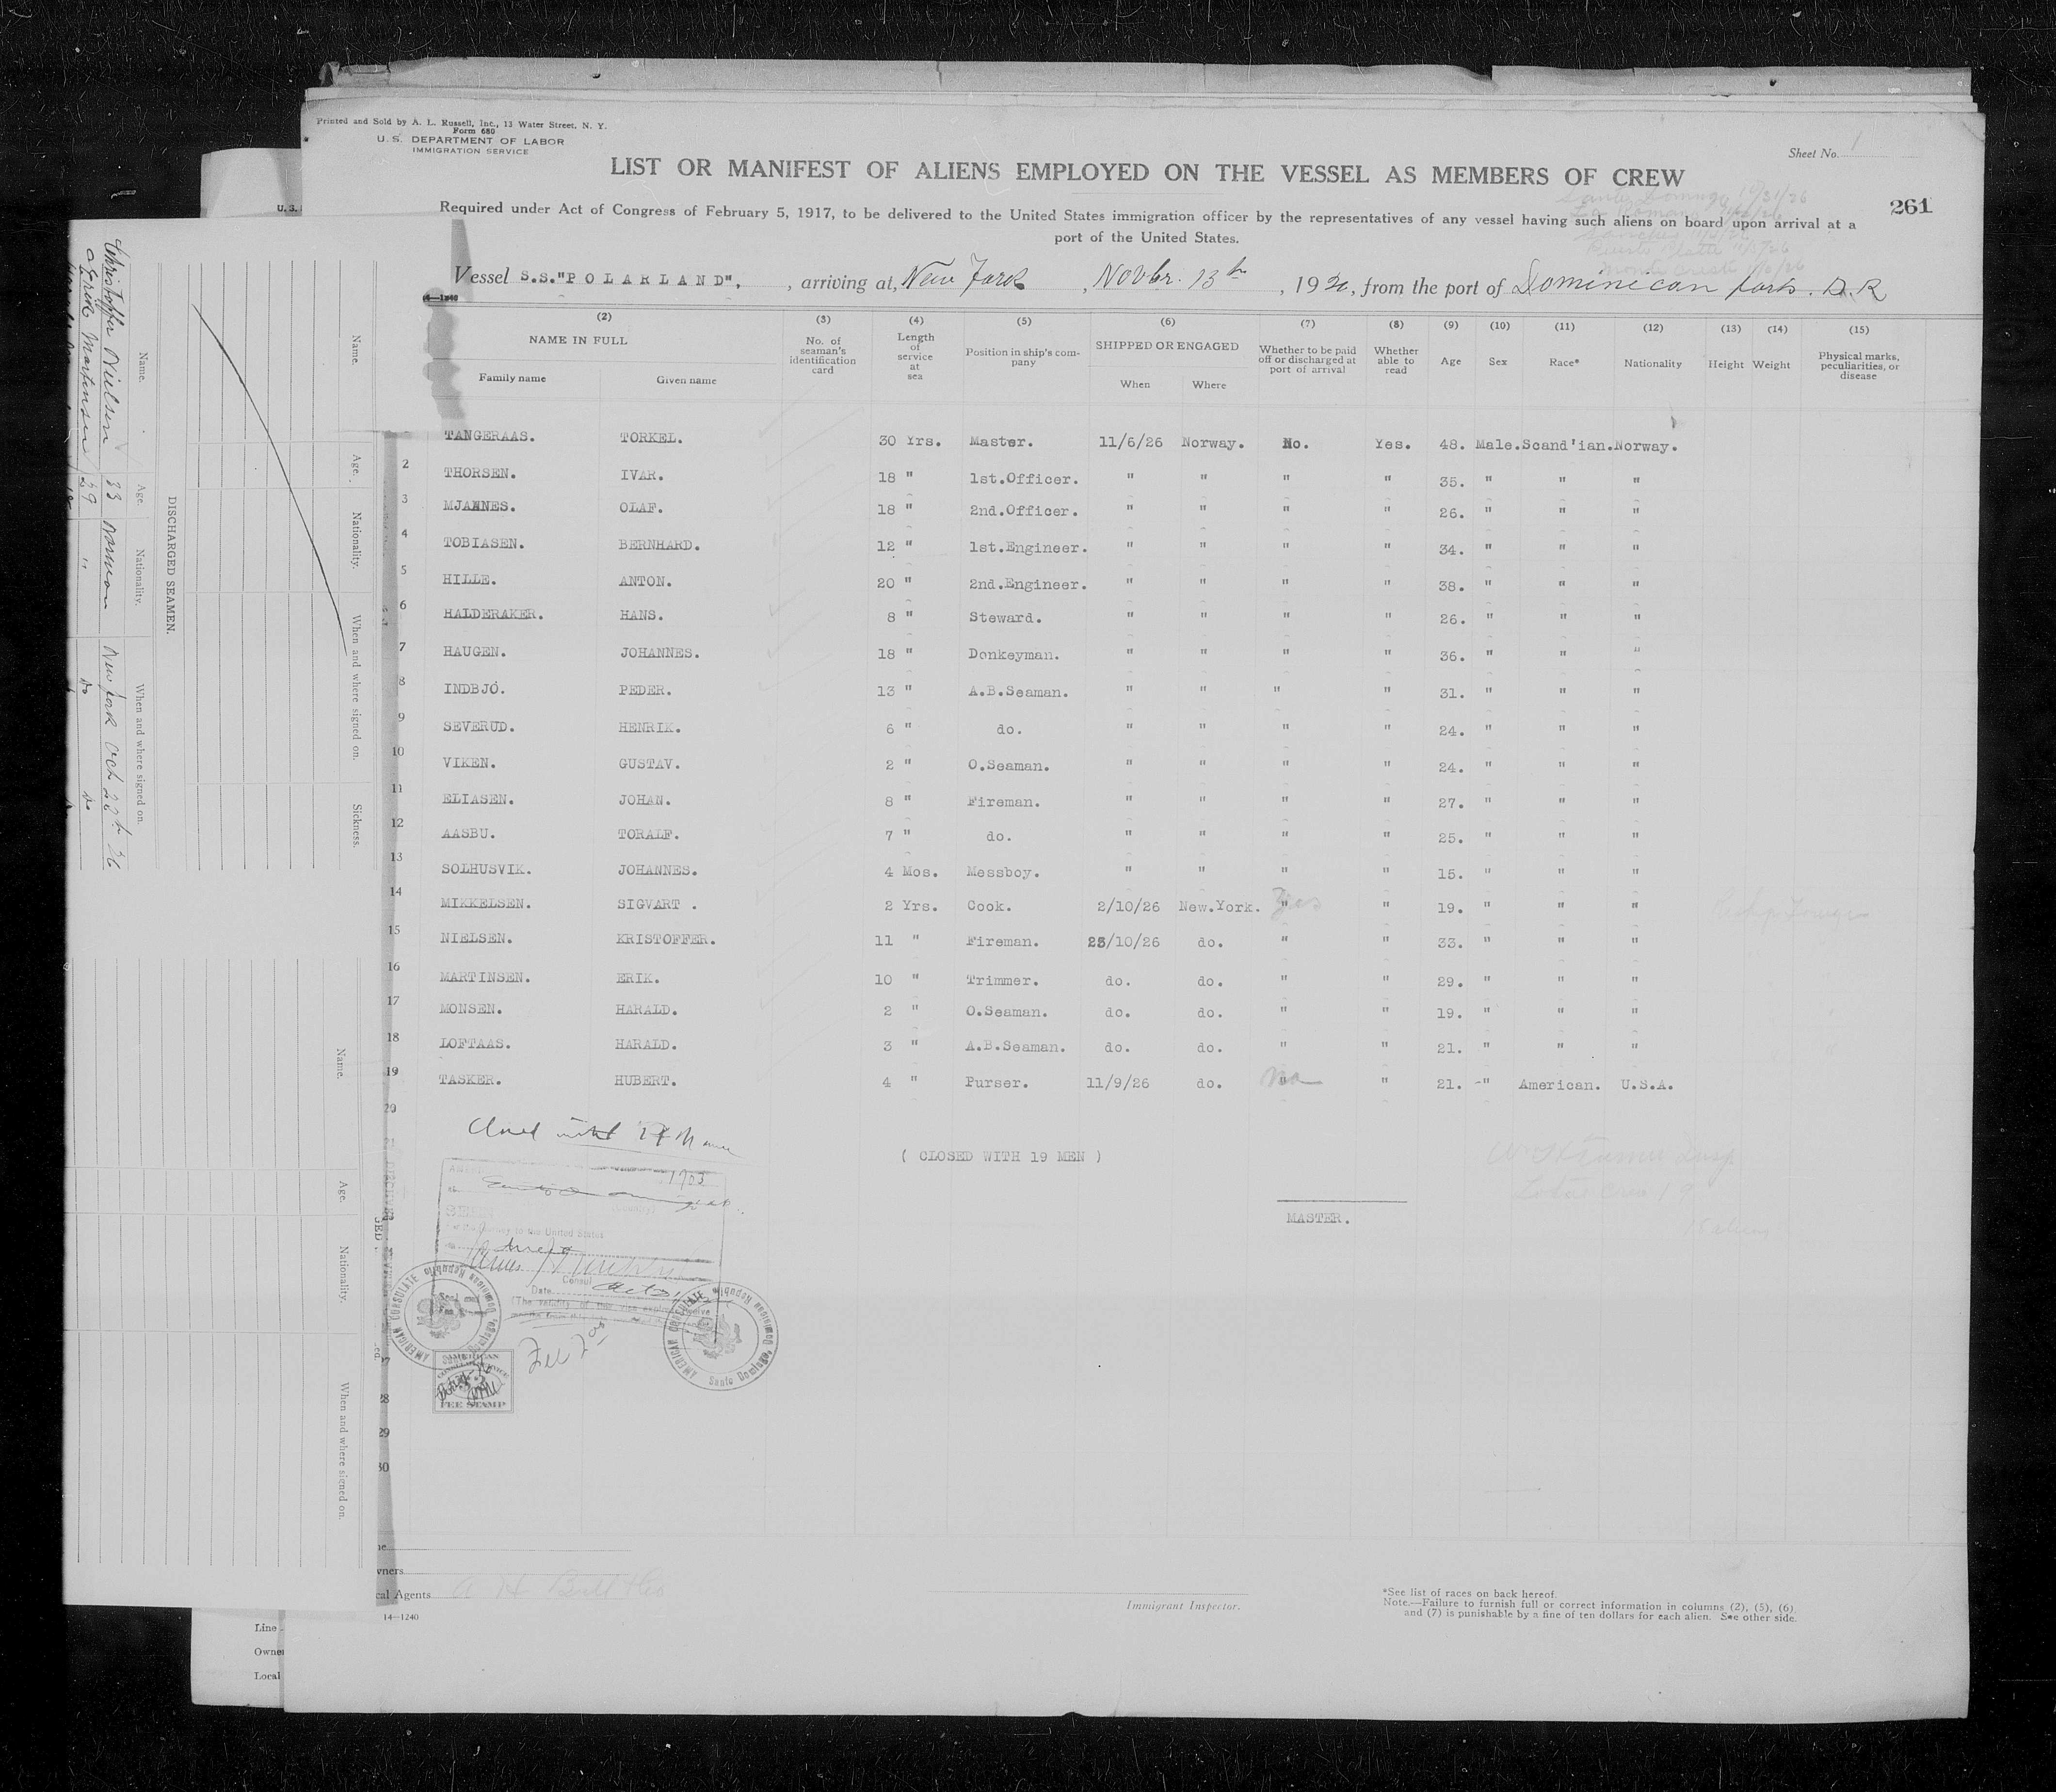 Printed and Sold by A. L. Russell, Inc., 13 Water Street, N. Y.
Form 680
U. S. DEPARTMENT OF LABOR
IMMIGRATION SERVICE
Sheet No. 1
LIST OR MANIFEST OF ALIENS EMPLOYED ON THE VESSEL AS MEMBERS OF CREW
261
Required under Act of Congress of February 5, 1917, to be delivered to the United States immigration officer by the representatives of any vessel having such aliens on board upon arrival at a
port of the United States.
Vessel S.S."POLARLAND", , arriving at, New York , Novbr. 13th , 1926, from the port of Dominican Ports. D.R
14—1240
(2) (3) (4) (5) (6) (7) (8) (9) (10) (11) (12) (13) (14) (15)
NAME IN FULL
Family name Given name
No. of seaman's identification card
Length of service at sea
Position in ship's company
SHIPPED OR ENGAGED
When Where
Whether to be paid off or discharged at port of arrival
Whether able to read
Age Sex Race* Nationality Height Weight
Physical marks, peculiarities, or disease
TANGERAAS. TORKEL. 30 Yrs. Master. 11/6/26 Norway. No. Yes. 48. Male. Scand'ian. Norway.
2 THORSEN. IVAR. 18 " 1st.Officer. " " " " 35. " " "
3 MJAANES. OLAF. 18 " 2nd.Officer. " " " " 26. " " "
4 TOBIASEN. BERNHARD. 12 " 1st.Engineer. " " " " 34. " " "
5 HILLE. ANTON. 20 " 2nd.Engineer. " " " " 38. " " "
6 HALDERAKER. HANS. 8 " Steward. " " " " 26. " " "
7 HAUGEN. JOHANNES. 18 " Donkeyman. " " " " 36. " " "
8 INDBJÓ. PEDER. 13 " A.B.Seaman. " " " " 31. " " "
9 SEVERUD. HENRIK. 6 " do. " " " " 24. " " "
10 VIKEN. GUSTAV. 2 " O.Seaman. " " " " 24. " " "
11 ELIASEN. JOHAN. 8 " Fireman. " " " " 27. " " "
12 AASBU. TORALF. 7 " do. " " " " 25. " " "
13 SOLHUSVIK. JOHANNES. 4 Mos. Messboy. " " " " 15. " " "
14 MIKKELSEN. SIGVART . 2 Yrs. Cook. 2/10/26 New.York. " Yes " 19. " " "
15 NIELSEN. KRISTOFFER. 11 " Fireman. 28/10/26 do. " " 33. " " "
16 MARTINSEN. ERIK. 10 " Trimmer. do. do. " " 29. " " "
17 MONSEN. HARALD. 2 " O.Seaman. do. do. " " 19. " " "
18 LOFTAAS. HARALD. 3 " A.B.Seaman. do. do. " " 21. " " "
19 TASKER. HUBERT. 4 " Purser. 11/9/26 do. " No " 21. -" American. U.S.A.
20
( CLOSED WITH 19 MEN )
MASTER.
For the journey to the United States
Consul
Date
(The validity of this visa expires twelve
AMERICAN CONSULATE Santo Domingo, Dominican Republic
AMERICAN CONSULATE Santo Domingo, Dominican Republic
AMERICAN
FEE STAMP
28
29
30
Immigrant Inspector.
*See list of races on back hereof.
Note.—Failure to furnish full or correct information in columns (2), (5), (6),
and (7) is punishable by a fine of ten dollars for each alien. See other side.
14—1240
Line
Local
DISCHARGED SEAMEN.
Name. Age. Nationality. When and where signed on.
Christoffer Nielsen 33 New York Oct 28th 26
Erik Martinsen 29 " do do
Name. Age. Nationality. When and where signed on. Sickness.
Name. Age. Nationality. When and where signed on.